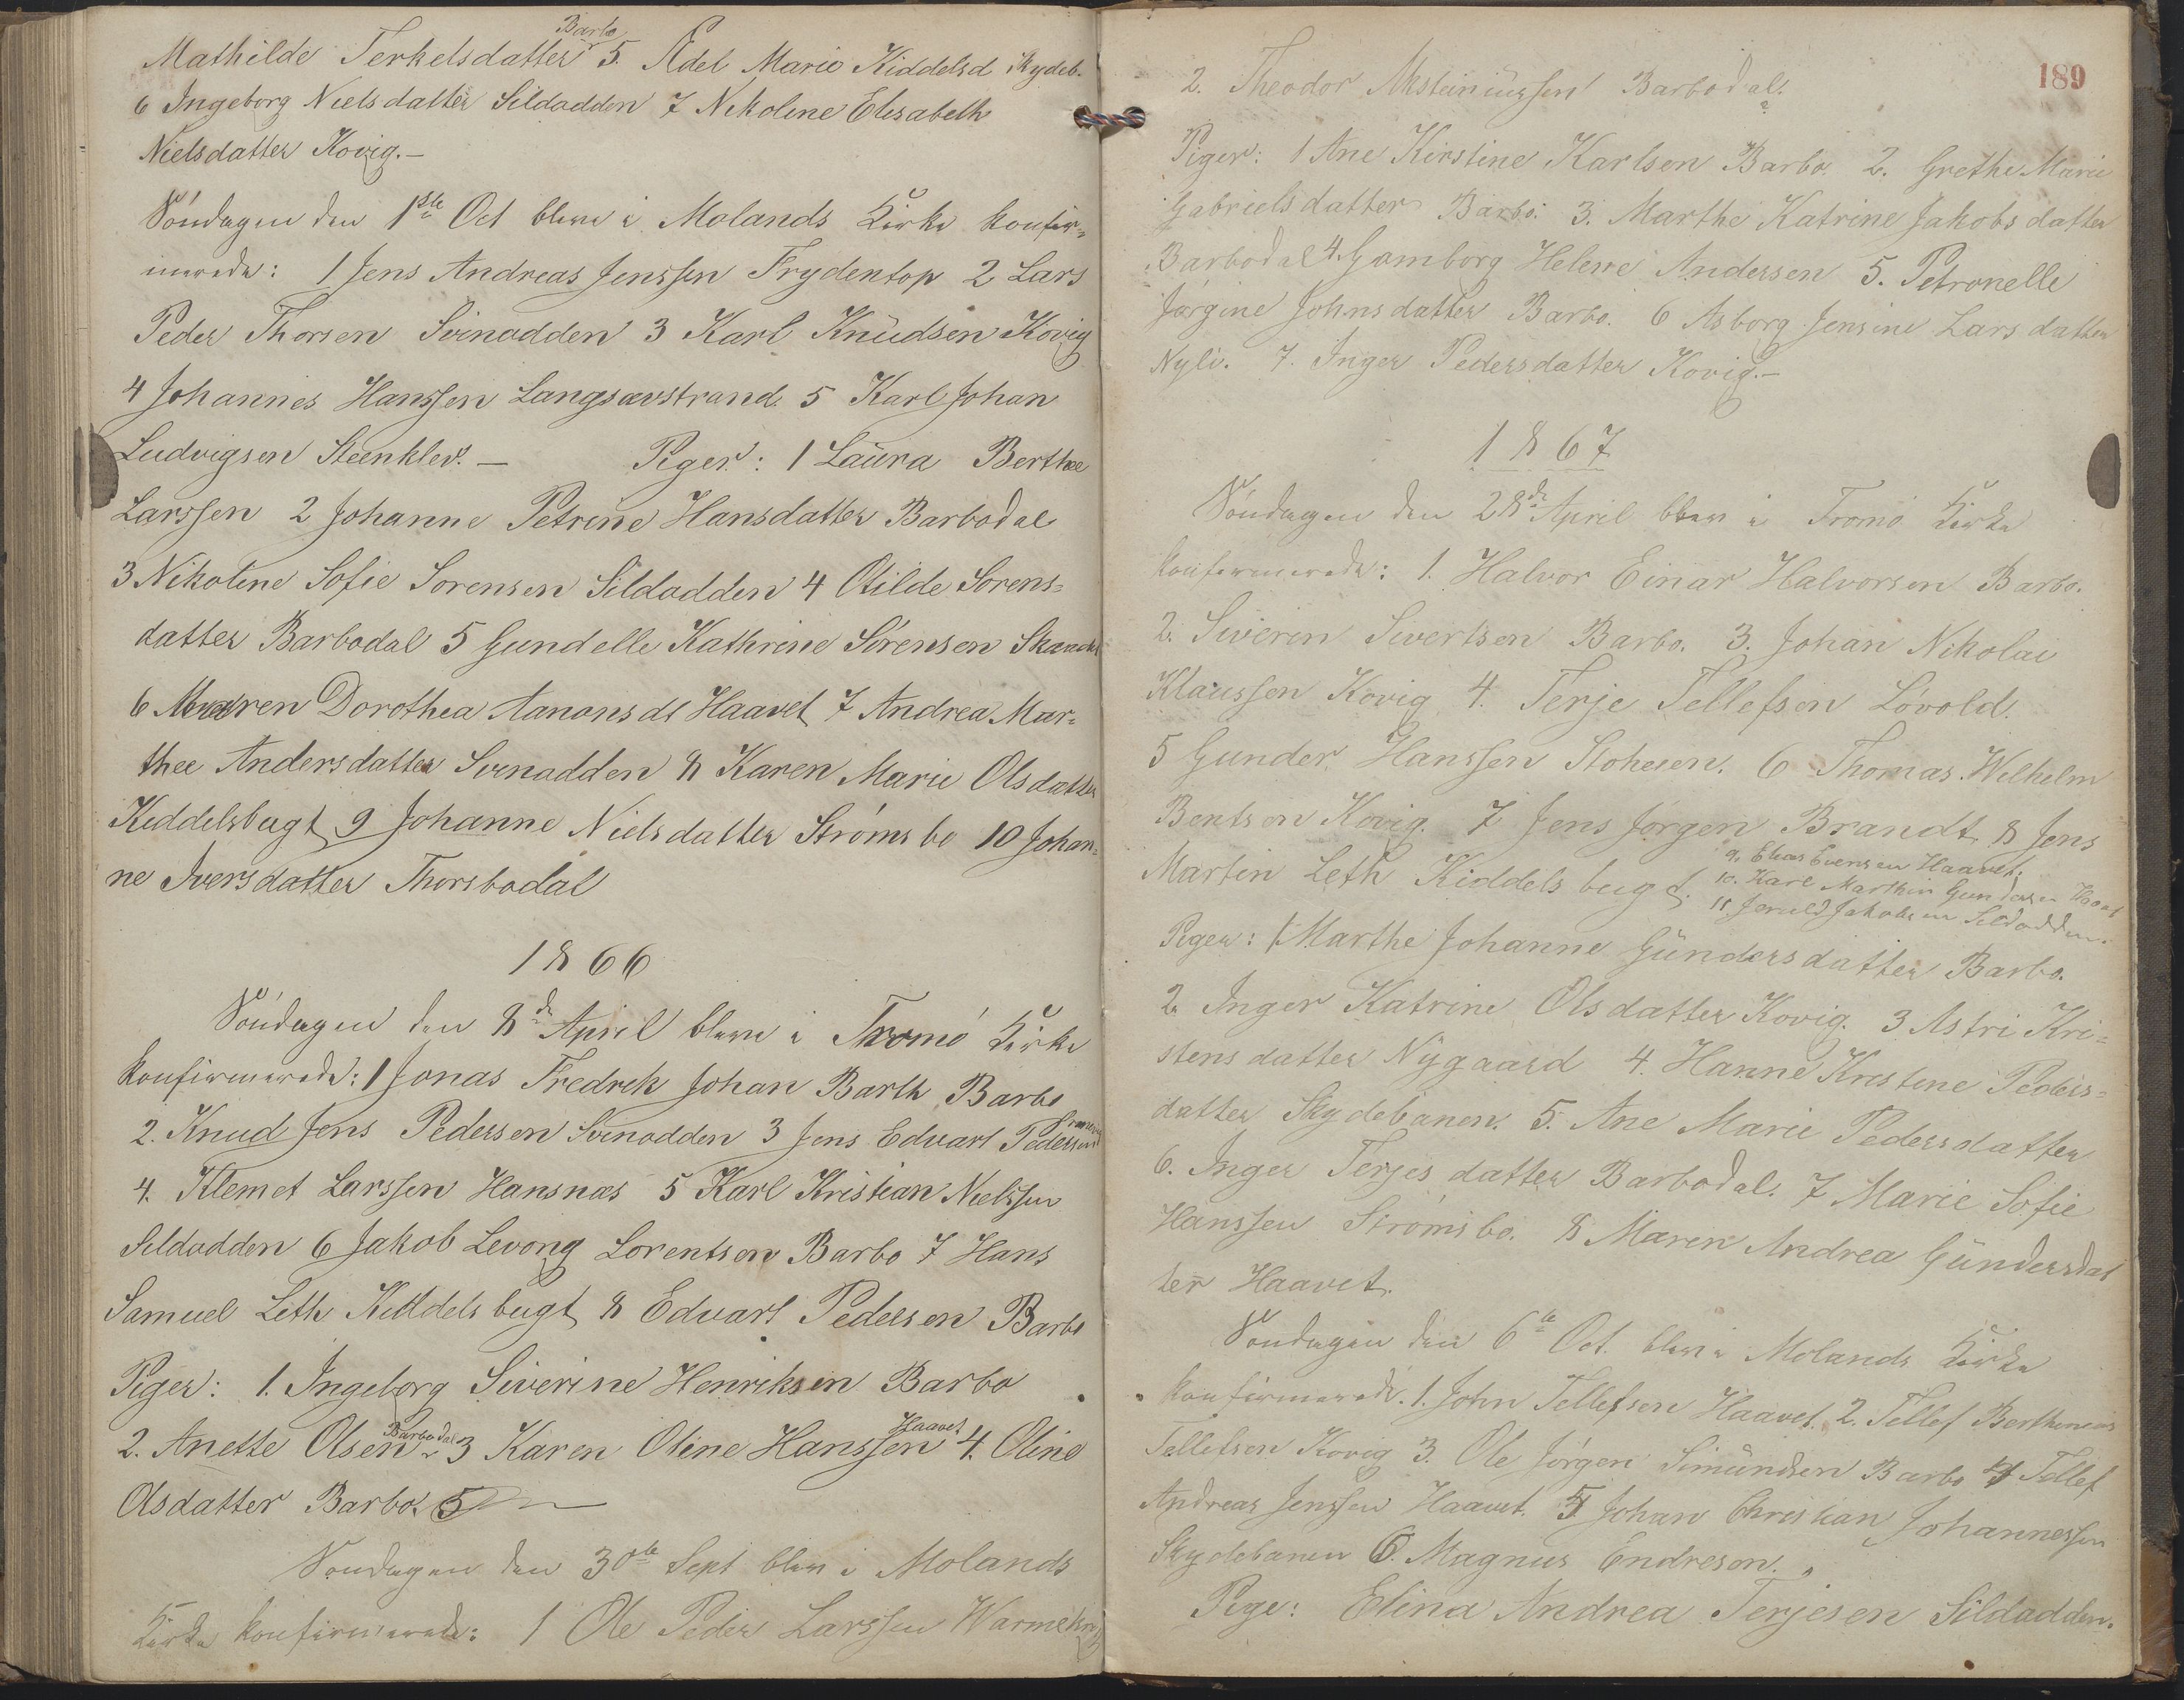 Mathilde Terkelsdatter Barbo 5. Adel Marie Kiddelsd Skydeb.
6 Ingeborg Nielsdatter Sildodden 7 Nikoline Elisabeth
Nielsdatter Kovig.—
Söndagen den 1ste Oct bleve i Molands Kirke konfir-
merede: 1 Jens Andreas Jenssen Frydentop 2 Lars
Peder Thorsen Svinodden 3 Karl Knudsen Kovig
4 Johannes Hanssen Langsævstrand. 5 Karl Johan
Ludvigsen Steenklev.— Piger: 1 Laura Berthe
Larssen 2 Johanne Petrine Hansdatter Barbodal
3 Nikoline Sofie Sorensen Sildodden 4 Otilde Sorens-
datter Barbodal 5 Gundelle Kathrine Sörensen
6 Maren Dorothea Aanonsdt Haavet 7 Andrea Mar-
thee Andersdatter Svinodden 8 Karen Marie Olsdatter
Kiddelsbugt 9 Johanne Nielsdatter Strömsbo 10 Johan-
ne Iversdatter Thorsbodal
1866
Söndagen den 8de April bleve i Tromö Kirke
konfirmerede: 1 Jonas Fredrik Johan Barth Barbo
2. Knud Jens Pedersen Svinodden 3 Jens Edvart Pedersen
4. Klemet Larssen Hansnæs 5 Karl Kristian Nielssen
Sildodden 6 Jakob Levong Lorentsen Barbo 7 Hans
Samuel Leth Kiddelsbugt 8 Edvart Pedersen Barbo
Piger: 1. Ingeborg Siverine Henriksen Barbo
2. Anette Olsen Barbodal 3 Karen Oline Hanssen Haavet 4. Oline
Olsdatter Barbo. 5
Söndagen den 30te Sept bleve i Molands
Kirke konfirmerede: 1 Ole Peder Larssen
189
2. Theodor Barbodal.
Piger: 1 Ane Kirstine Karlsen Barbo. 2. Grethe Marie
Gabrielsdatter Barbo. 3. Marthe Katrine Jakobsdatter
Barbodal 4. Gamborg Helene Andersen 5. Petronelle
Jörgine Johnsdatter Barbo. 6 Asborg Jensine Larsdatter
Nyli. 7. Inger Pedersdatter Kovig.—
1867
Söndagen den 28de April bleve i Tromö Kirke
konfirmerede: 1. Halvor Einar Halvorsen Barbo.
2. Siverin Sivertsen Barbo. 3. Johan Nikolai
Klaussen Kovig 4. Terje Tellefsen Lövold.
5 Gunder Hanssen Stoheien. 6 Thomas Wilhelm
Bentsen Kovig. 7 Jens Jörgen Brandt 8 Jens
Martin Leth Kiddelsbugt. 9. Elias Evensen Haavet.
10. Karl Marthin Gundersen Haavet
11 Jeruld Jakobsen Sildodden.
Piger: 1 Marthe Johanne Gundersdatter Barbo.
2. Inger Katrine Olsdatter Kovig. 3 Astri Kri-
stensdatter Nygaard 4. Hanne Kristine Peders-
datter Skydebanen. 5. Ane Marie Pedersdatter
6. Inger Terjesdatter Barbodal. 7 Marie Sofie
Hanssen Strömsbo. 8 Maren Andrea Gundersdat
ter Haavet.
Söndagen den 6te Oct. bleve i Molands Kirke
konfirmerede. 1. John Tellefsen Haavet. 2. Tellef
Tellefsen Kovig 3. Ole Jörgen Simundsen Barbo 4 Tellef
Andreas Jenssen Haavet. 5 Johan Christian Johannessen
Skydebanen 6. Magnus Endresen.
Pige: Elina Andrea Terjesen Sildodden.